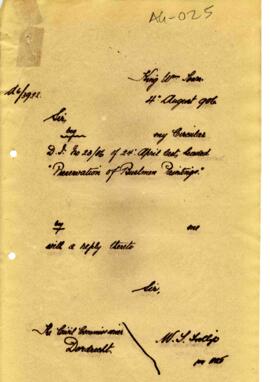 AG-025
King Wm Town
4th August 906
Sir,
my Circular
D.I. No 23/06 of 24th April last, headed
"Preservation of Bushmen Paintings."
me
with a reply thereto
Sir,
The Civil Commissioner
Dordrecht.